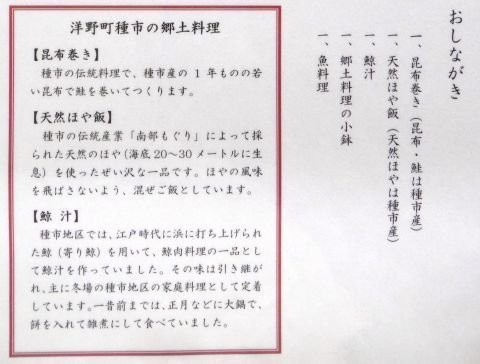 おしながき
一、昆布巻き（昆布・鮭は種市産）
一、天然ほや飯（天然ほやは種市産）
一、鯨汁
一、郷土料理の小鉢
一、魚料理
洋野町種市の郷土料理
【昆布巻き】
種市の伝統料理で、種市産の１年ものの若
い昆布で鮭を巻いてつくります。
【天然ほや飯】
種市の伝統産業「南部もぐり」によって採
られた天然のほや(海底20～30メートルに生
息）を使ったぜい沢な一品です。ほやの風味
を飛ばさないよう、混ぜご飯としています。
【鯨 汁】
種市地区では、江戸時代に浜に打ち上げられ
た鯨（寄り鯨）を用いて、鯨肉料理の一品とし
て鯨汁を作っていました。その味は引き継が
れ、主に冬場の種市地区の家庭料理として定着
しています。一昔前までは、正月などに大鍋で、
餅を入れて雑煮にして食べていました。